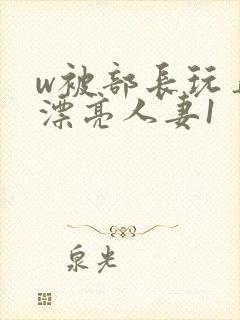 w被部長玩
漂亮人妻1
泉光